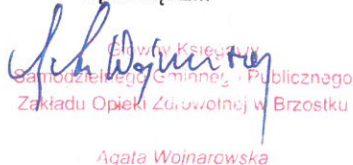 Główny Księgowy
Samodzielnego Gminnego Publicznego
Zakładu Opieki Zdrowotnej w Brzostku
Agata Wojnarowska